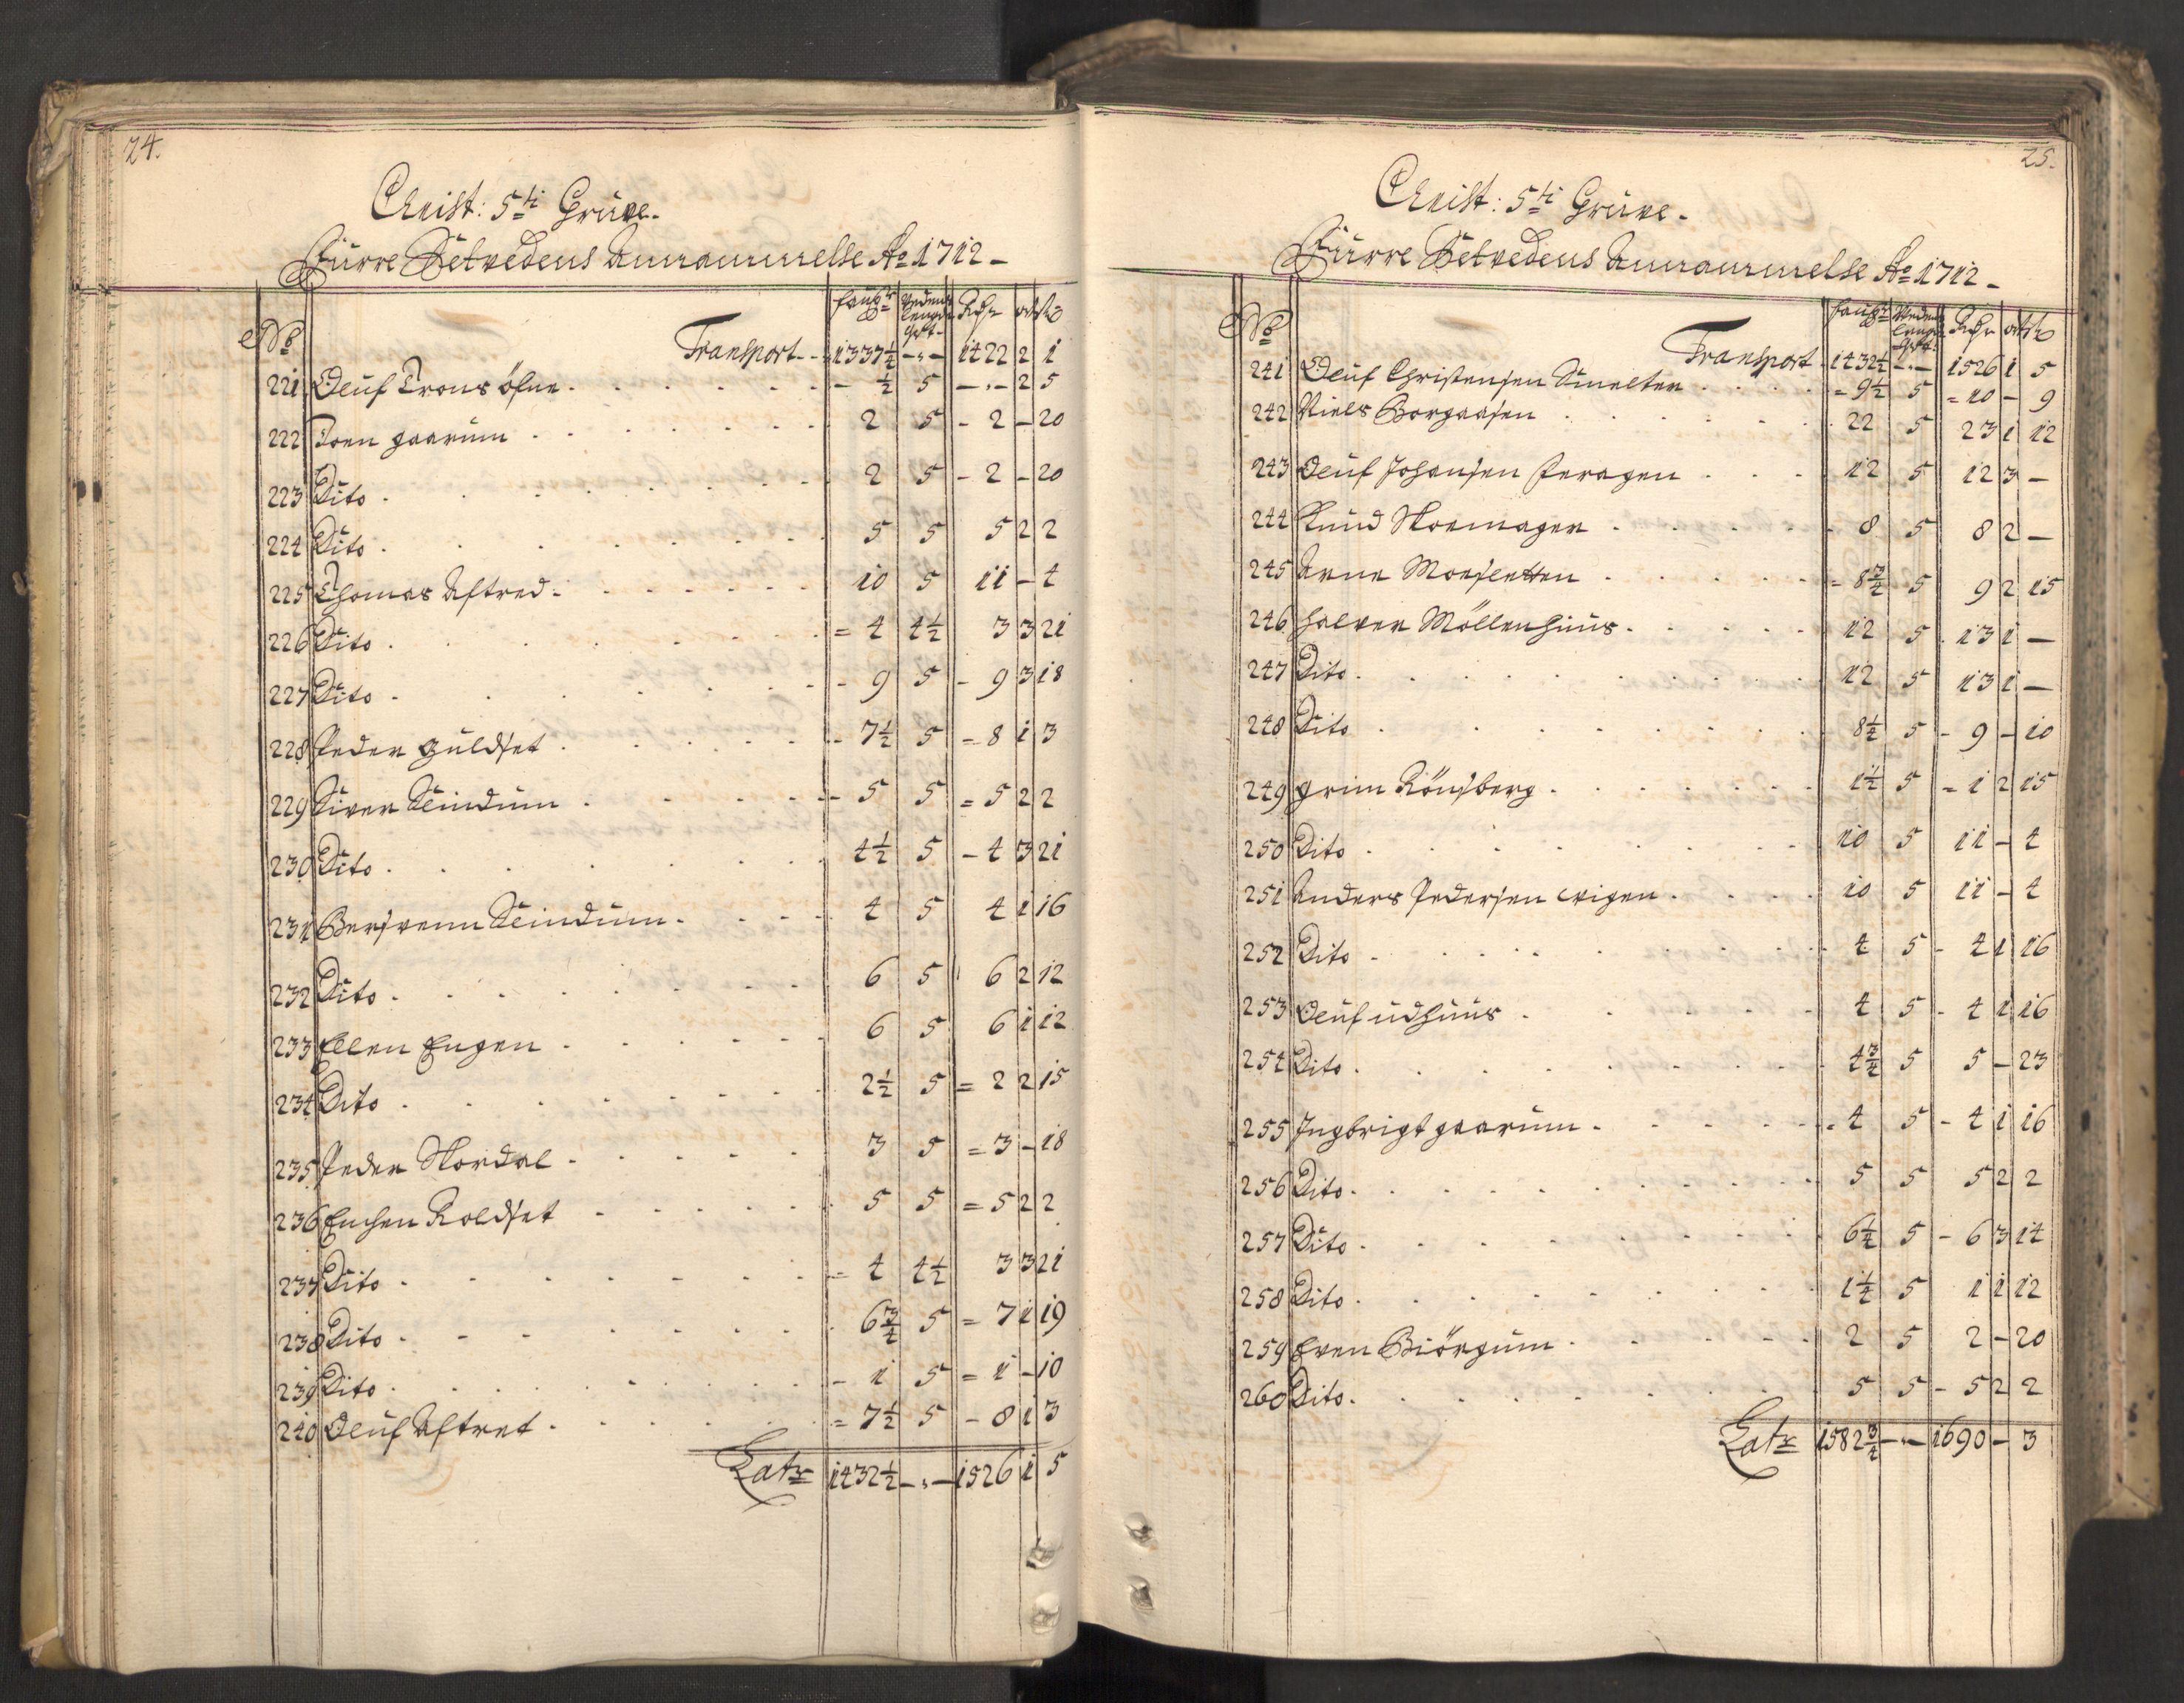 24.
Christ: 5ti Gruve.
Furre Setvedens Annammelse Ao 1712 -
No faufr vedens lengde qrt. Rdr ort ß
Transport - 1337 1/4 - " - 1422 2 1
221 Oluf Trons öfne - 1/2 5 - " - 2 5
222 Joen gaarum 2 5 - 2 - 20
223 Dito 2 5 - 2 - 20
224 Dito 5 5 5 2 2
225 Thomas Aftred 10 5 11 - 4
226 Dito = 4 4 1/2 3 3 21
227 Dito - 9 5 - 9 3 18
228 Peder Guldset - 7 1/2 5 = 8 1 3
229 Siver Sleindum - 5 5 = 5 2 2
230 Dito 4 1/2 5 - 4 3 21
231 Bersvenn Sleindum 4 5 4 1 16
232 Dito 6 5 6 2 12
233 Ellen Engen 6 5 6 1 12
234 Dito 2 1/2 5 = 2 2 15
235 Peder Nordal 3 5 = 3 - 18
236 Erichen Roldset 5 5 = 5 2 2
237 Dito = 4 4 1/2 3 3 21
238 Dito 6 3/4 5 = 7 1 19
239 Dito - 1 5 = 1 - 10
240 Oluf Aftret = 7 1/2 5 - 8 1 3
Latr 1432 1/2 - " - 1526 1 5
25.
Christ: 5ti Gruve -
Furre Setvedens Annammelse Ao 1712 -
No faufr vedens lengde qrt. Rdr ort ß
Transport 1432 1/2 - " - 1526 1 5
241 Oluf Christensen Smelter = 9 1/2 5 = 10 - 9
242 Niels Borgaasen 22 5 23 1 12
243 Oluf Johansen Peragen 12 5 12 3 -
244 Knud Skomager 8 5 8 2 -
245 Arne Moesletten = 8 3/4 5 9 2 15
246 Halver Möllenhuus 12 5 13 1 -
247 Dito 12 5 13 1 -
248 Dito 8 1/4 5 - 9 - 10
249 Grim Rönsberg 1 1/2 5 = 1 2 15
250 Dito 10 5 11 - 4
251 Anders Pedersen wigen 10 5 11 - 4
252 Dito 4 5 - 4 1 16
253 Oluf udhuus 4 5 - 4 1 16
254 Dito 4 3/4 5 5 - 23
255 Ingbrigt gaarum = 4 5 - 4 1 16
256 Dito 5 5 5 2 2
257 Dito 6 1/4 5 - 6 3 14
258 Dito 1 1/4 5 1 1 12
259 Even Biörgum 2 5 2 - 20
260 Dito 5 5 - 5 2 2
Latr 1582 3/4 - " - 1690 - 3